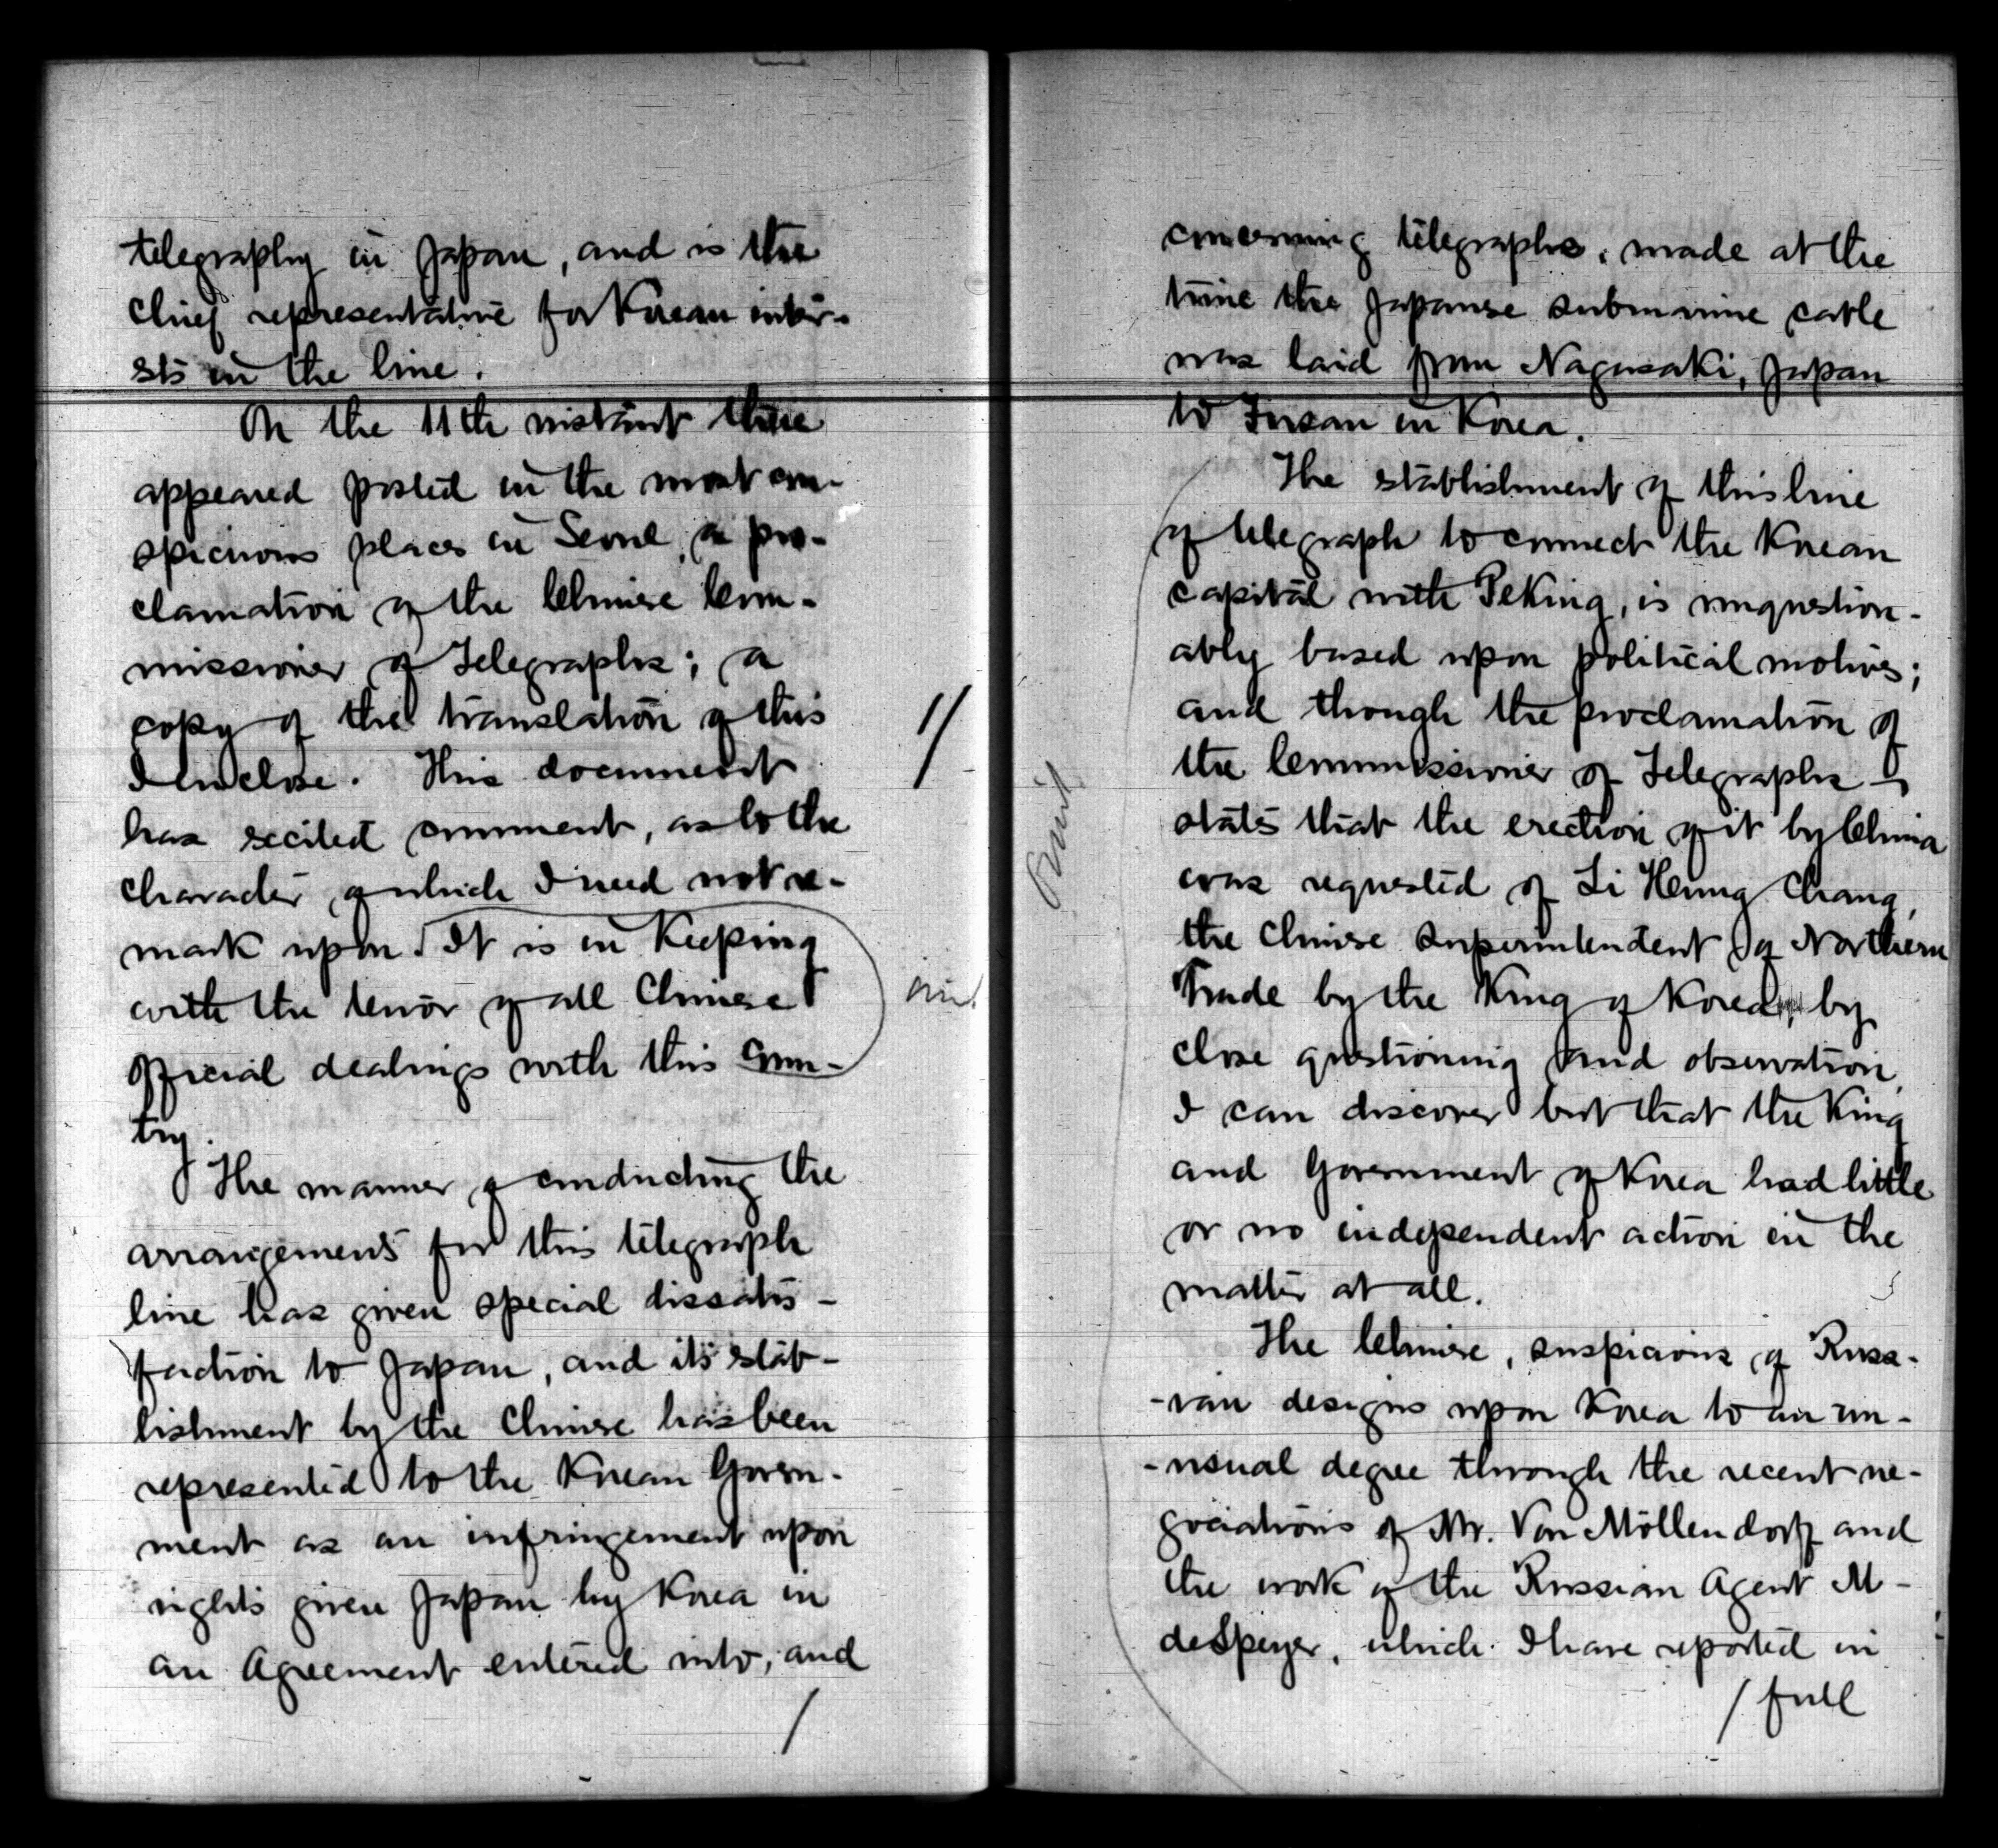 telegraphy in Japan, and is the
chief representative for Korean inter-
sts in the line.
On the 11th instant there
appeared posted in the most con-
spicuous places in Seoul, a pro-
clamation of the Chinese Com-
missioner of Telegraphs; a
copy of the translation of this
I enclose. This document
has excited comment, as to the
character of which I need not re-
mark upon. It is in Keeping
with the tenor of all Chinese
official dealings with this coun-
try.
The manner of conducting the
arrangements for this telegraph
line has given special dissatis-
faction to Japan, and its estab-
lishment by the Chinese has been
represented to the Korean Govern-
ment as an infringement upon
rights given Japan by Korea in
an Agreement entered into, and
/
//
concerning telegraphs, made at the
time the Japanese submarine cable
was laid from Nagasaki, Japan
to Fusan in Korea.
The establishment of this line
of telegraph to connect the Korean
capital with Peking, is unquestion-
ably based upon political motives;
and though the proclamation of
the Commissioner of Telegraphs
states that the erection of it by China
was requested of Li Hung Chang,
the Chinese Superintendent of Northern
Trade by the King of Korea, by
close questioning and observation,
I can discover but that the King
and Government of Korea had little
or no independent action in the
matter at all.
The Chinese, suspicious of Russ-
-ian designs upon Korea to an un-
-usual degree through the recent ne-
gociations of Mr. Von Möllendorff and
the work of the Russian Agent M-
deSpeyer, which I have reported in
/ full
Print